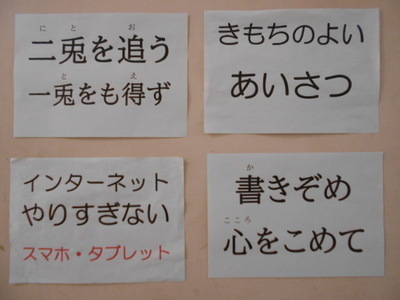 二兎を追う
一兎をも得ず
きもちのよい
あいさつ
インターネット
やりすぎない
スマホ・タブレット
書きぞめ
心をこめて